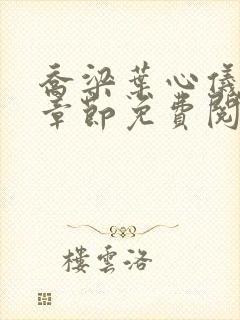 喬梁葉心儀
章節免費閱
樓雲洛